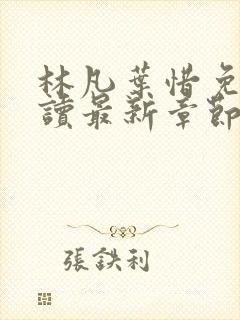 林凡葉惜免
讀最新章節
張鉄利